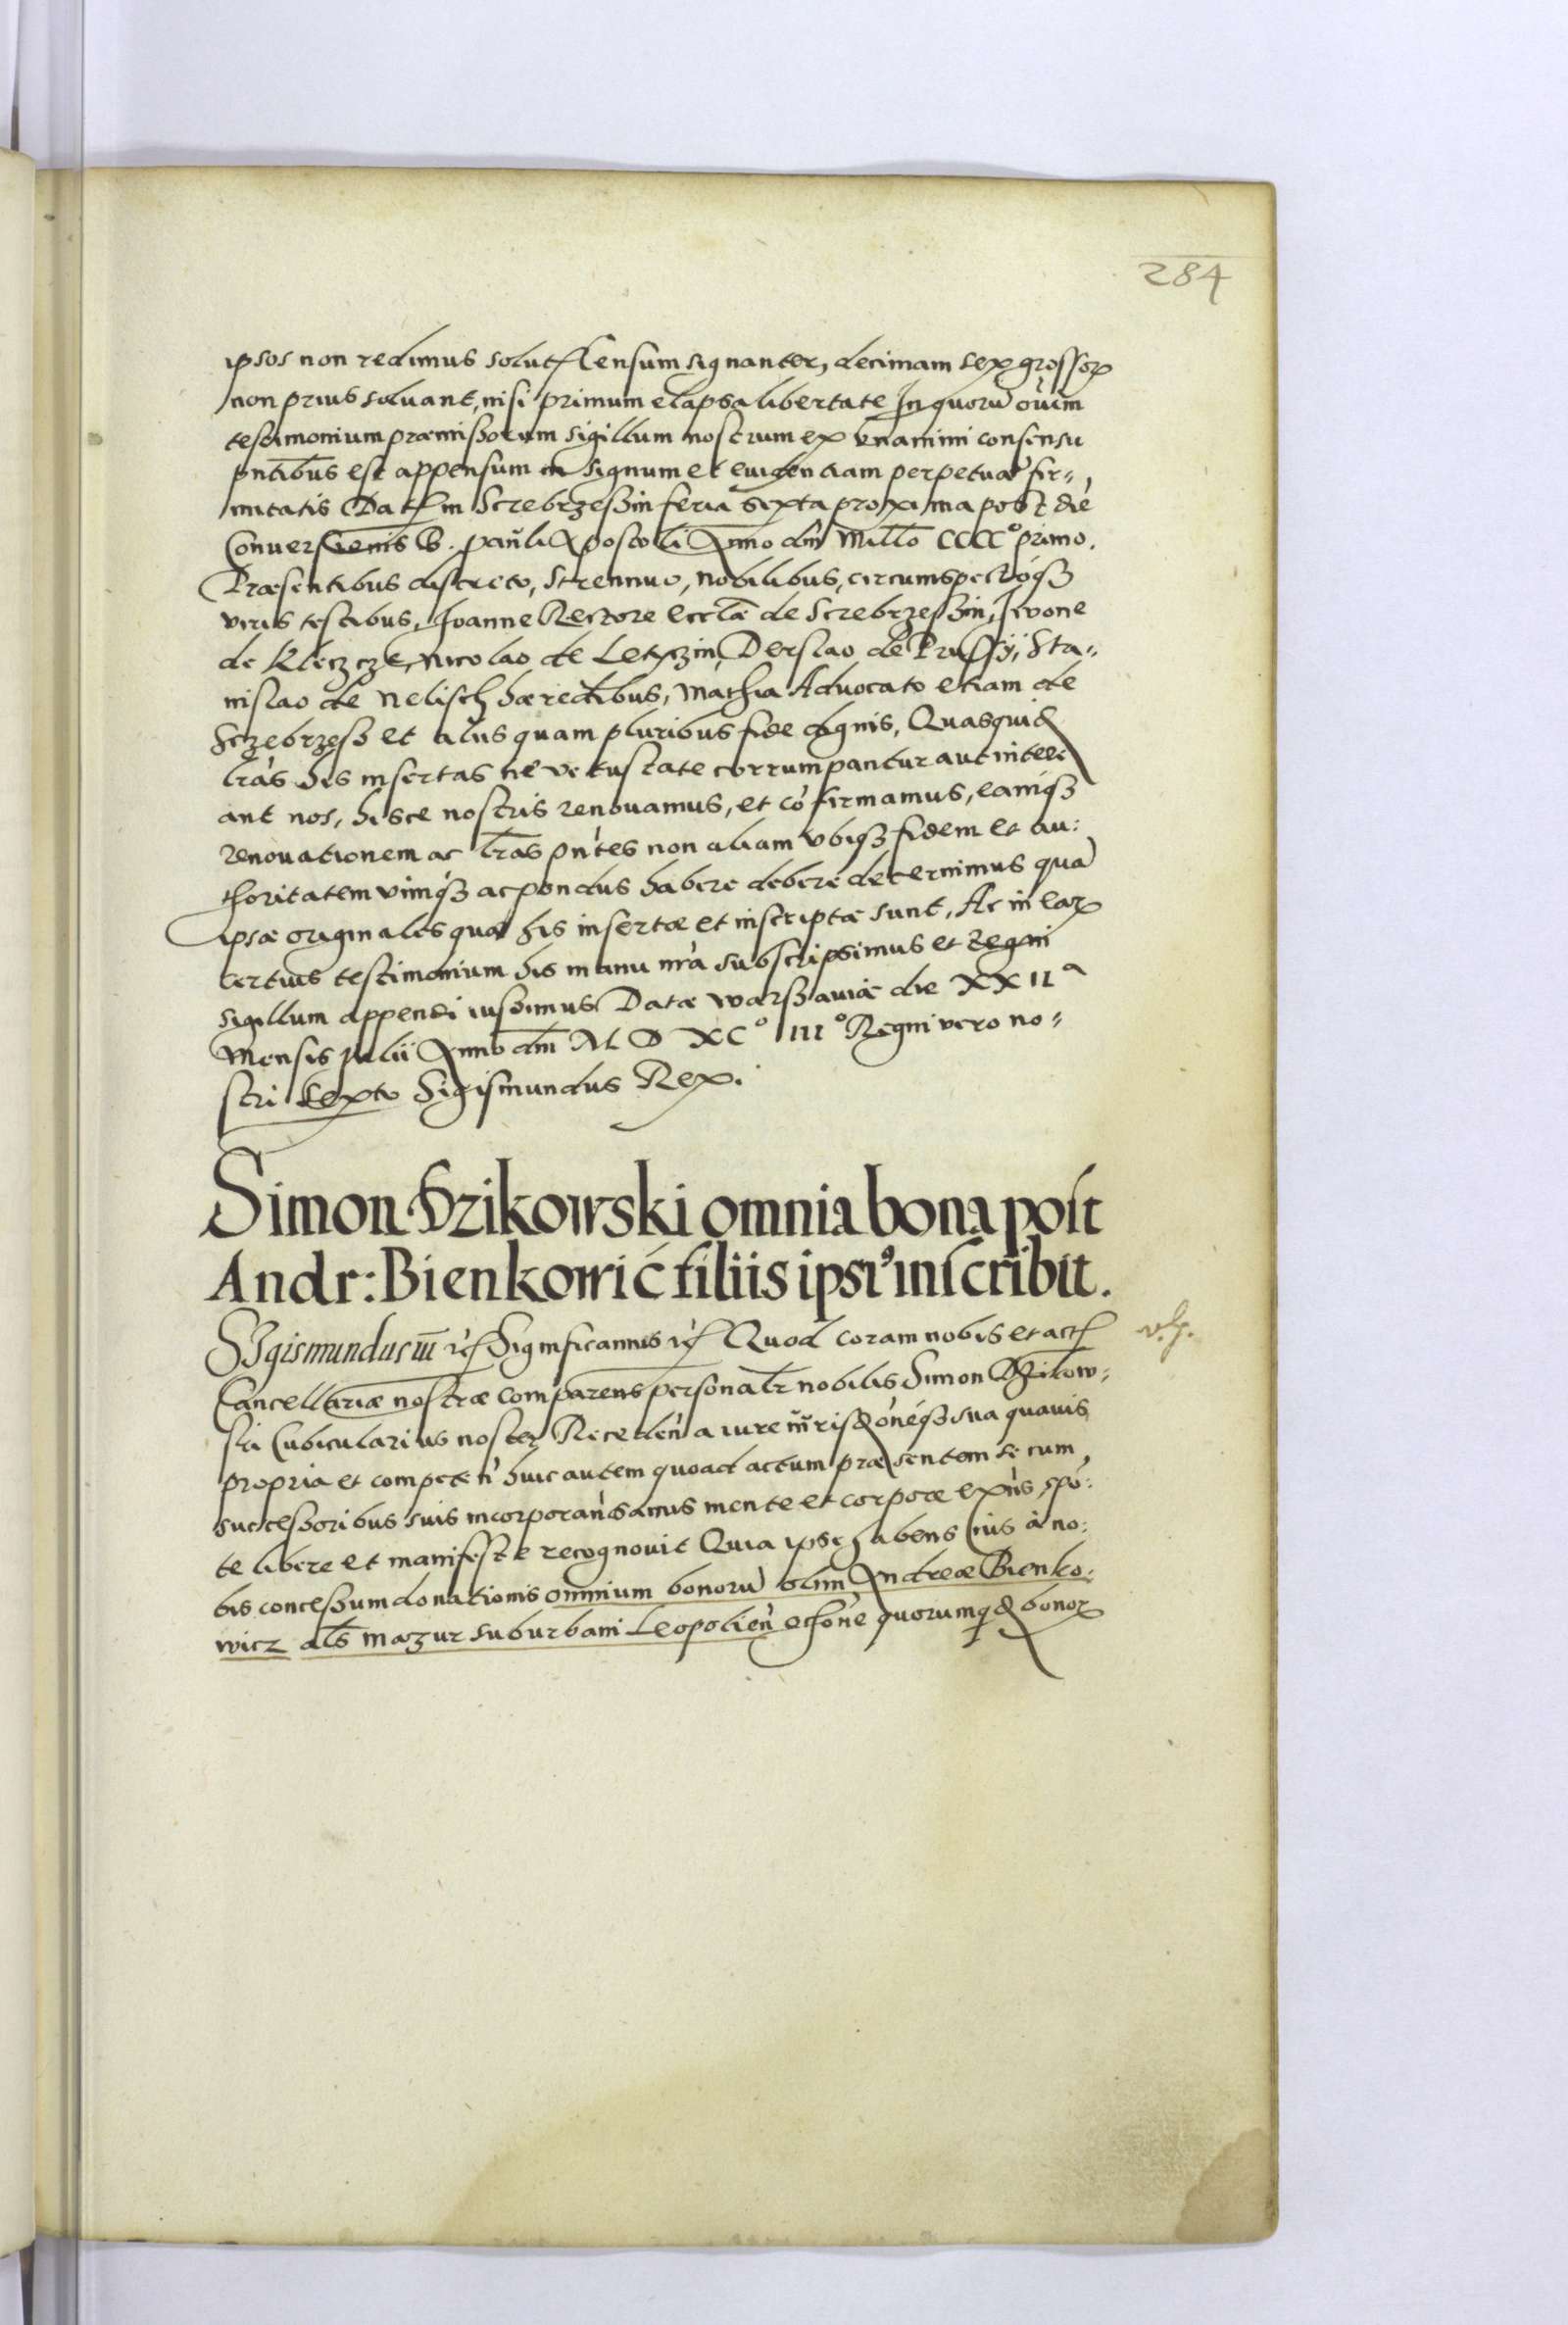 284
ipsos non redimus solut Censum signanter, decimam sex grossor
non prius soluant, nisi primum elapsa libertate In quorū oūim
testimonium præmissorum sigillum nostrum ex vnanimi consensu
pntibus est appensum in signum et euidentiam perpetuæ fir„
mitatis Dat in Screbrzessin feria sexta proxima post diē
Conuersionis B. Pauli Apostoli Anno dni Millo CCCC° primo.
Præsentibus discreto, strennuo, nobilibus, circumspectoqȝ
viris testibus, Joanne Rectore ecclæ de Screbrzessin, Iwone
de Kleczcze, Nicolao de Letyczin, Derslao de Prussy, Sta„
nislao de Nelisch hæredibus, Mathia Aduocato etiam de
Sczebrzess et alÿs quam pluribus fide dignis, Quasquid
lrās his insertas nè vetustate corrumpantur aut intere
ant nos, hisce nostris renouamus, et cōfirmamus, eamqȝ
renouationem ac lrās pntes non aliam vbiqȝ fidem et au:
thoritatem vimqȝ ac pondus habere debere decernimus quā
ipsæ originales quæ his insertæ et inscriptæ sunt, Ac in ear
certius testimonium his manu nrā subscripsimus et Regni
sigillum appendi iussimus Datæ Warssauiæ die XXII a
Mensis Julii Anno dni M D XC° III° Regni vero no„
stri Sexto Sigismundus Rex.
Simon Dzikowski omnia bona post
Andr: Bienkowic filiis ipsi9 inscribit.
SIgismundus III Significamus Quod coram nobis et act
v.lp.
Cancellariæ nostræ comparens personalr nobilis Simon Dzikow„
ski Cubicularius noster Receden a iure iurisdōneqȝ sua quauis
propria et competen huic autem quoad actum præsentem se cum
successoribus suis incorporan sanus mente et corpore exns spō:
te libere et manifeste recognouit Quia ipse habens Ius à no:
bis concessum donationis omnium bonorū olim Andreæ Bienko:
wicz als Mazur suburbani Leopolien quorumqd bonor